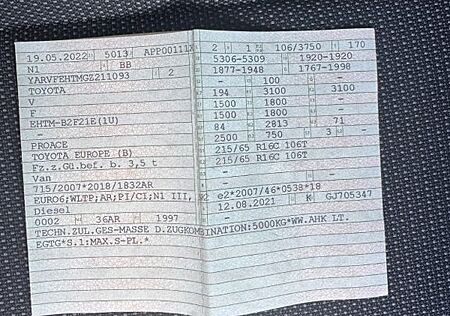 19.05.2022 5013 APP00111X 2 1 106/3750 170
N1 BB 5306-5309 1920-1920
YARVFEHTMGZ211093 2 1877-1948 1767-1998
TOYOTA - 100 -
V 194 3100 3100
F 1500 1800 -
EHTM-B2F21E(1U) 1500 1800 -
84 2813 71
PROACE 2500 750 3 -
TOYOTA EUROPE (B) 215/65 R16C 106T
Fz.z.Gü.bef. b. 3,5 t 215/65 R16C 106T
Van -
715/2007*2018/1832AR -
EURO6;WLTP;AR;PI/CI;N1 III, e2*2007/46*0538*18
Diesel 12.08.2021 K GJ705347
0002 36AR 1997
TECHN.ZUL.GES-MASSE D.ZUGKOMBINATION:5000KG*WW.AHK LT.
EGTG*S.1:MAX.S-PL.*